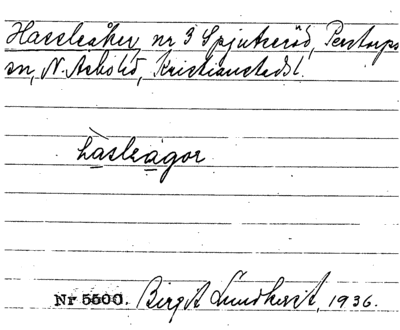 Hassleåker, nr 3 Spjutseröd, Perstorps
sn, N. Åsbo hd, Kristianstads l.
hàsleágor
Nr 5500. Birgit Lundkvist, 1936.